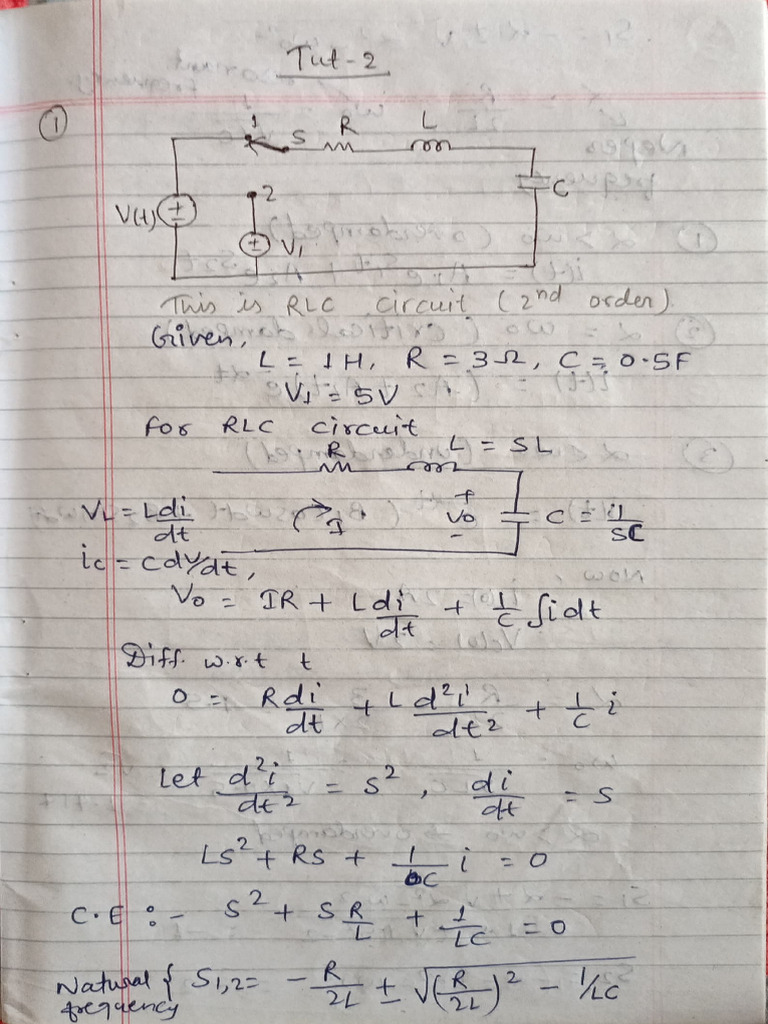 Tut-2
①
1 S R L
C
2
V(t) ±
± V₁
This is RLC circuit (2nd order).
Given,
L = 1H, R = 3Ω, C = 0.5F
V₁ = 5V
For RLC circuit
R L = SL
VL = L di/dt I + Vo - C = 1/SC
ic = C dv/dt,
Vo = IR + L di/dt + 1/C ∫i dt
Diff. w.r.t t
0 = R di/dt + L d²i/dt² + 1/C i
Let d²i/dt² = S², di/dt = S
LS² + RS + 1/C i = 0
C.E :- S² + S R/L + 1/LC = 0
Natural frequency { S1,2 = -R/2L ± √((R/2L)² - 1/LC)